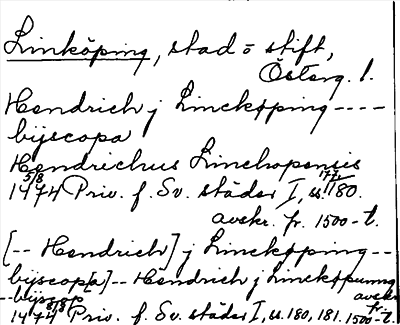 Linköping, stad o stift,
Österg. l.
Hendrich j Linckøping ----
bijscopa
Hendrichus Linchopensis
5/8 177,
1474 Priv. f. Sv. städer I, s. 180.
avskr. fr. 1500-t.
[-- Hendrich] j Linckøping --
bijscop[a] -- Hendrich j Linckøpung
--bijscop avskr.
5/8 fr.
1474 Priv. f. Sv. städer I, s. 180, 181. 1500-t.